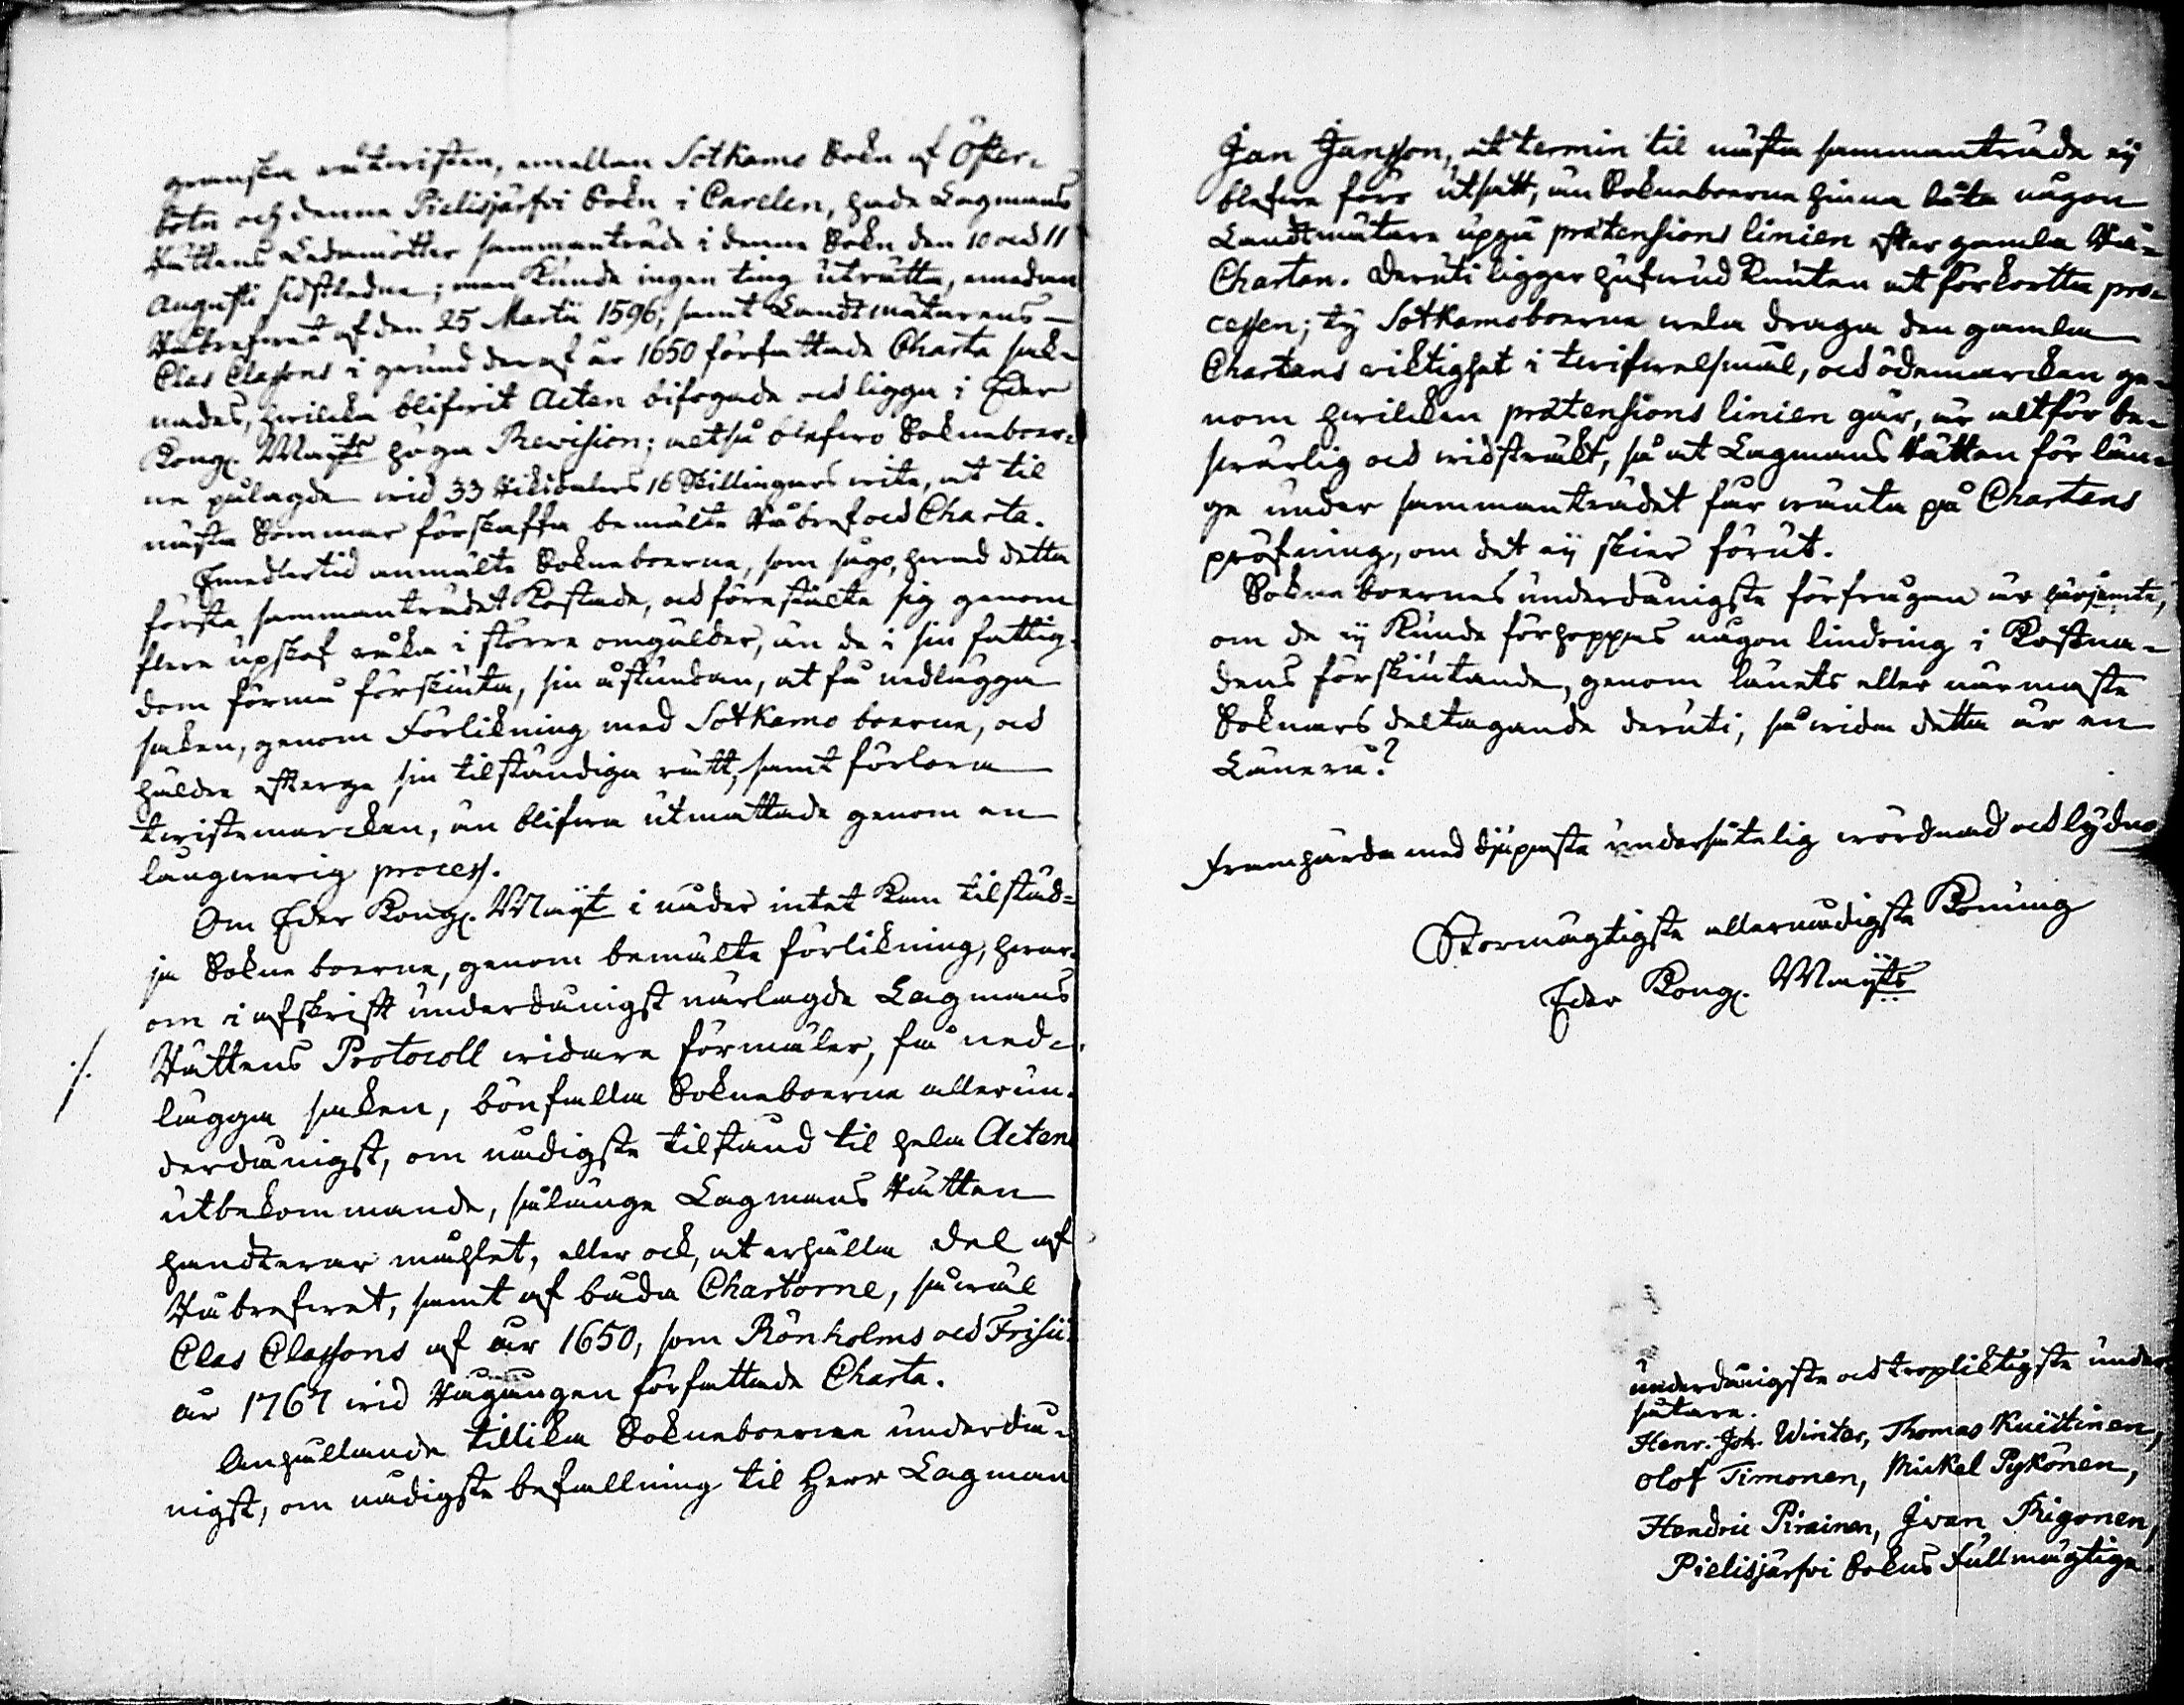 granska råtwisten, emellan Sotkamo Sokn af Öster-
botn och denna Pielisjärfvi Sokn i Carelen, hade Lagmans
Rättens Ledamötter sammanträde i denna Sokn den 10 och 11
Augusti sidstledne; men kunde ingen ting uträtta, emedan
Råbrefwet af den 25 Martii 1596, samt Landtmätarens
Clas Classons i grund deraf år 1650 författade Charta sak-
nades, hwilcka blifwit Acten bifogade och ligga i Eder
Kongl. Maÿts höga Revision; altså blefwo Sokneboer-
ne pålagde wid 33 Riksdalers 16 Skillingars wite, at til
nästa Sommar förskaffa bemälte Råbref och Charta.
Emedlertid anmälte Sokneboerne, som sågo, hwad detta
första sammanträdet kostade, och förestälte sig genom
flera upskof råka i större omgälder, än de i sin fattig-
dom förmå förskiuta, sin åstundan, at få nedlägga
saken, genom Förlikning med Sotkamo boerne, och
hälldre efterge sin tilständiga rätt, samt förlora
twistemarcken, än blifwa utmattade genom en
långwarig process.
Om Eder Kongl. Maÿt i nåder intet kan tilstäd-
ja Sokne boerne, genom bemälte förlikning, hwar-
om i afskrift underdånigst närlagde Lagmans
Rättens Protocoll widare förmäler, få ned-
lägga saken, bönfalla Sokneboerne allerun-
derdånigst, om nådigste tilstånd til hela Acten
utbekommande, sålänge Lagmans Rätten
handterar måhlet, eller ock, at erhålla del af
Råbrefwet, samt af båda Chartorne, såwäl
Clas Classons af år 1650, som Rönholms och Frisii
år 1767 wid Rågången författade Charta.
Anhållande tillika Sokneboerne underdå-
nigst, om nådigste befallning til Herr Lagman
Jan Jansson, at termin til nästa sammanträde eÿ
blefwe förr utsatt, än Sokneboerne hinna låta någon
Landtmätare upgå prætensions linien efter gamla Rå-
Chartan. Deruti ligger hufwud Knuten at förkortta pro-
cessen; tÿ Sotkamoboerne wela draga den gamla
Chartans riktighet i twifwelsmål, och ödemarcken ge-
nom hwilcken prætensions linien går, är altför be-
swärlig och widsträkt, så at Lagmans Rätten för län-
ge under sammanträdet får wänta på Chartans
pröfning, om det eÿ skier förut.
Sokne boernes underdånigste förfrågan är härjemte,
om de eÿ kunde förhoppas någon lindring i kostna-
dens förskiutande, genom länets eller närmaste
Soknars deltagande deruti, så wida detta är en
Länerå?
Framhärda med djupaste undersåtelig wördnad och lydno
Stormägtigste allernådigste Konung
Eder Kongl. Maÿts
underdånigste och tropliktigste under-
såtare.
Henr. Joh. Winter, Thomas Kuittinen,
Olof Timonen, Mickel Pykönen,
Hendric Pirainen, Ivan Rigonen,
Pielisjärfvi Sokns Fullmägtige.